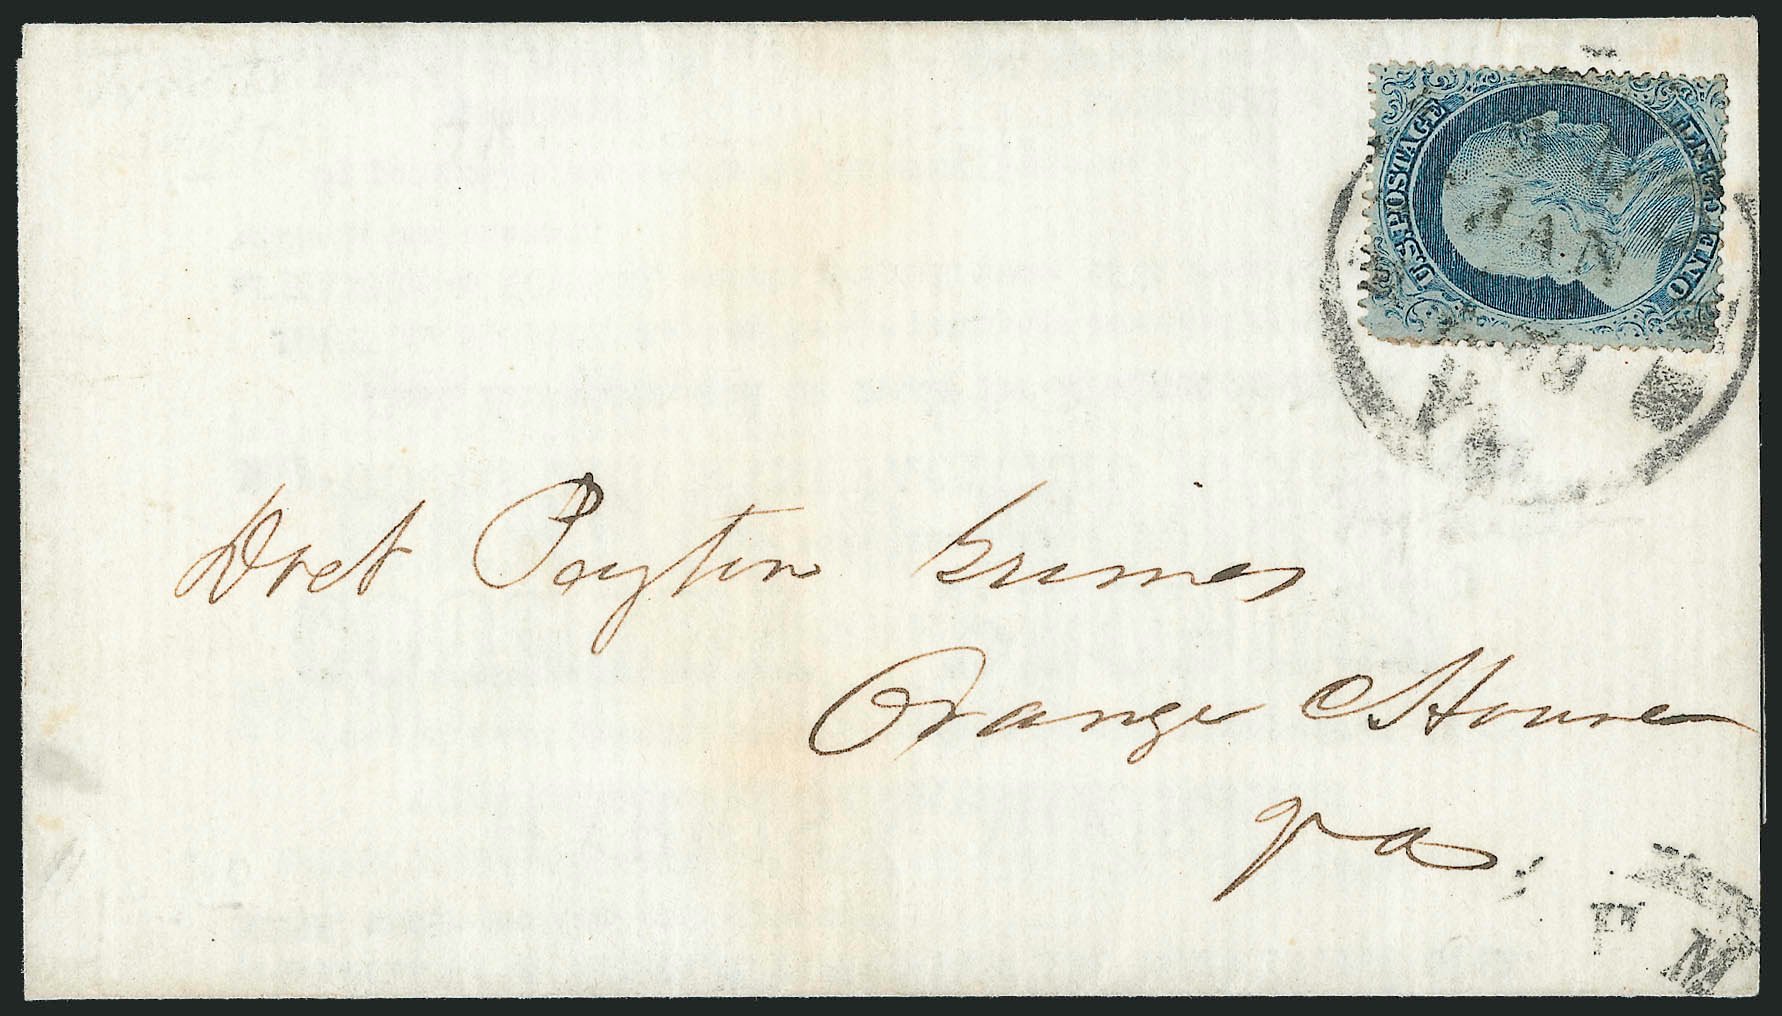 U.S. POSTAGE
ONE CENT
JAN
VA
Doct Peyton Grimes
Orange C House
Va